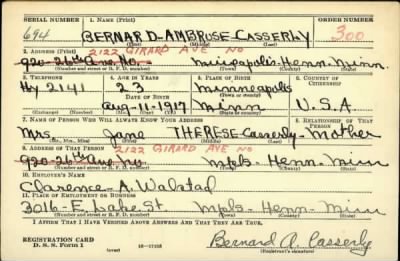 SERIAL NUMBER 1. NAME (Print) ORDER NUMBER
694 BERNARD-AMBROSE-CASSERLY 300
(First) (Middle) (Last)
2. ADDRESS (Print) 2122 GIRARD AVE NO
920-26th Ave. No. Minneapolis. Henn. Minn.
(Number and street or R. F. D. number) (Town) (County) (State)
3. TELEPHONE 4. AGE IN YEARS 5. PLACE OF BIRTH 6. COUNTRY OF CITIZENSHIP
Hy 2141 23 Minneapolis
DATE OF BIRTH (Town or county)
Aug-11-1917 Minn U.S.A
(Exchange) (Number) (Mo.) (Day) (Yr.) (State or country)
7. NAME OF PERSON WHO WILL ALWAYS KNOW YOUR ADDRESS 8. RELATIONSHIP OF THAT PERSON
Mrs. Jane THERESE Casserly - Mother
(Mr., Mrs., Miss) (First) (Middle) (Last)
9. ADDRESS OF THAT PERSON 2122 GIRARD AVE NO
920-26th Ave. No Mpls - Henn - Minn
(Number and street or R. F. D. number) (Town) (County) (State)
10. EMPLOYER'S NAME
Clarence - A. Walstad
11. PLACE OF EMPLOYMENT OR BUSINESS
3016-E. Lake. St. Mpls - Henn - Minn
(Number and street or R. F. D. number) (Town) (County) (State)
I AFFIRM THAT I HAVE VERIFIED ABOVE ANSWERS AND THAT THEY ARE TRUE.
REGISTRATION CARD
D. S. S. Form 1 16-17105 Bernard A. Casserly
(Registrant's signature)